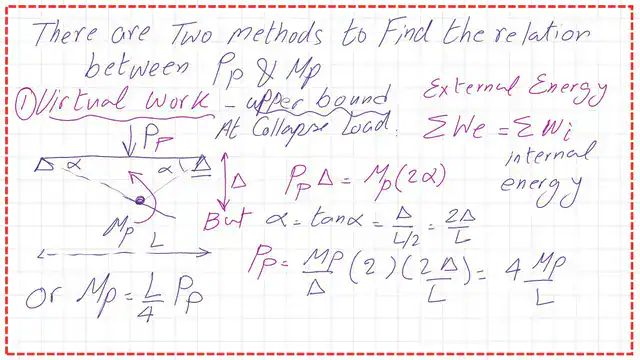 There are Two methods to Find the relation
between Pp & Mp
① Virtual work - upper bound
At Collapse Load.
External Energy
ΣWe = ΣWi
internal
energy
Pp
α α
Δ
Mp
L
Pp Δ = Mp(2α)
But α = tanα = Δ/(L/2) = 2Δ/L
Pp = Mp/Δ (2)(2Δ/L) = 4 Mp/L
Or Mp = L/4 Pp